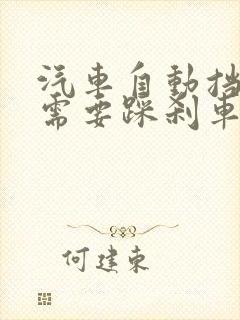 汽車自動挡
需要踩刹車
何建東